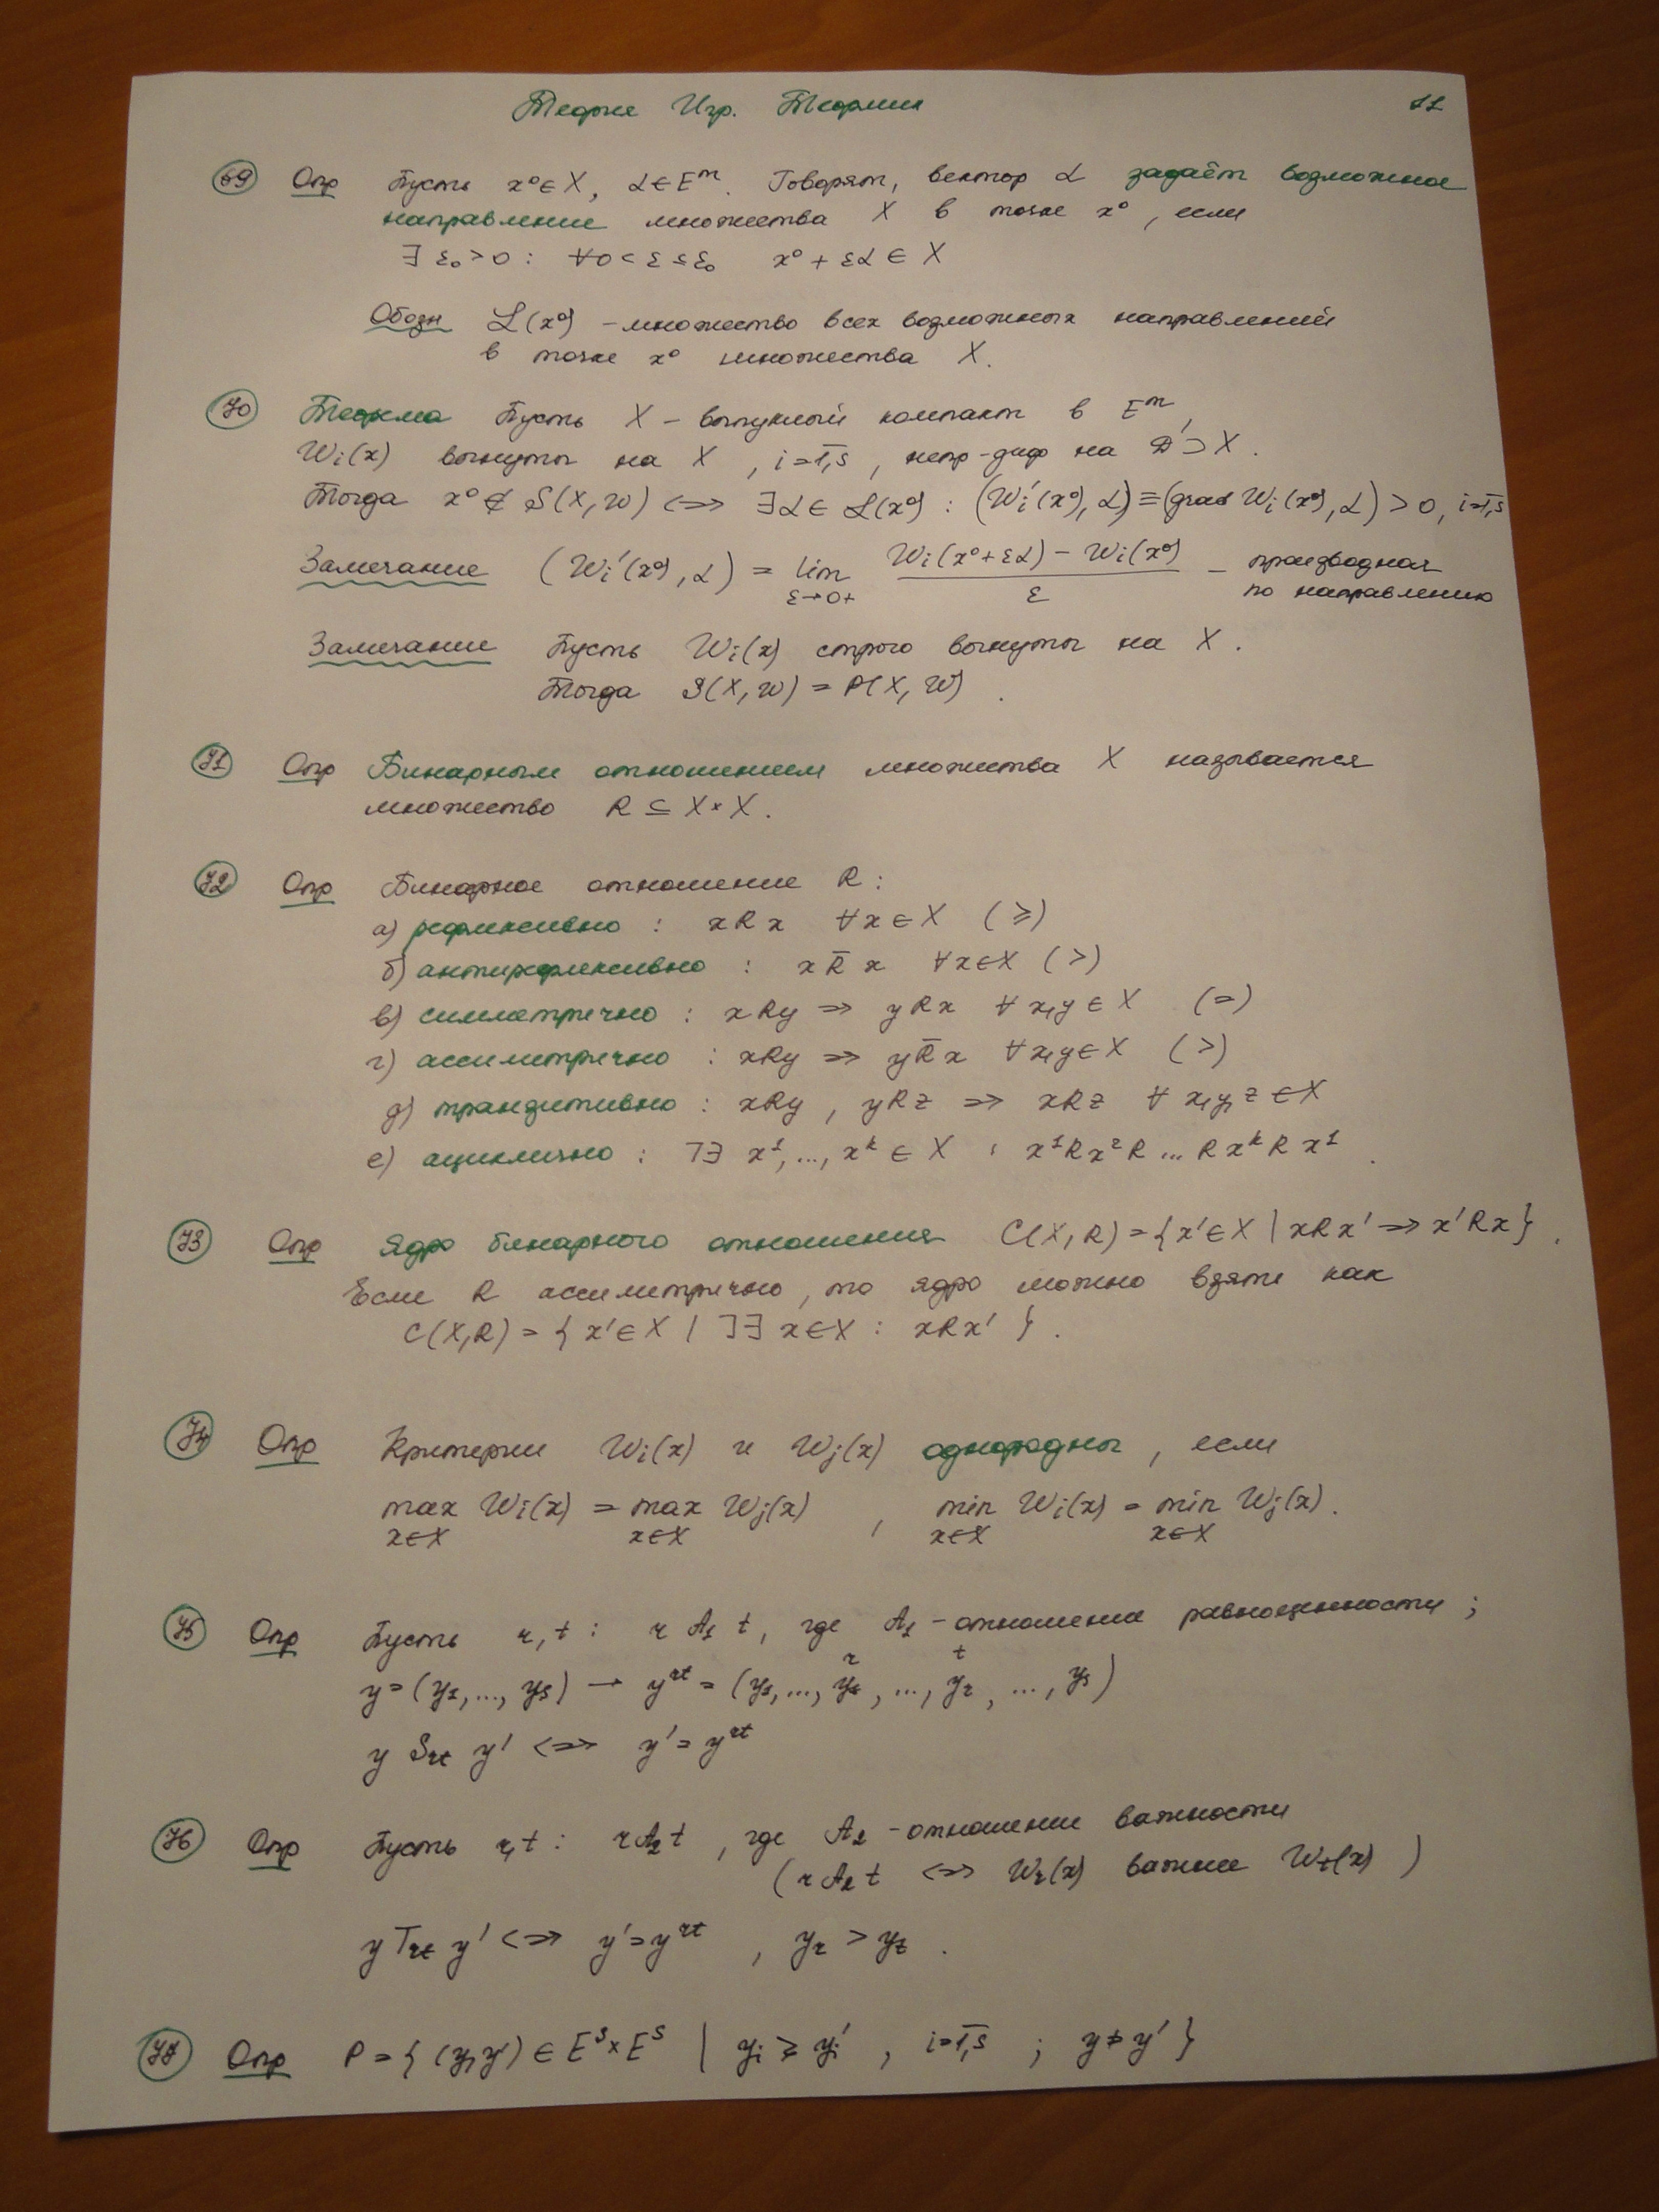 Теория Игр. Теормин 11
69 Опр Пусть x⁰ ∈ X, α ∈ Eᵐ. Говорят, вектор α задаёт возможное
направление множества X в точке x⁰, если
∃ ε₀ > 0 : ∀ 0 < ε ≤ ε₀ x⁰ + εα ∈ X
Обозн L(x⁰) – множество всех возможных направлений
в точке x⁰ множества X.
70 Теорема Пусть X – выпуклый компакт в Eᵐ,
Wi(x) вогнуты на X, i=1,s̅, непр-диф на D' ⊃ X.
Тогда x⁰ ∉ S(X, W) <=> ∃ α ∈ L(x⁰) : (Wi'(x⁰), α) ≡ (grad Wi(x⁰), α) > 0, i=1,s̅
Замечание (Wi'(x⁰), α) = lim_{ε→0+} (Wi(x⁰+εα) – Wi(x⁰)) / ε – производная
по направлению
Замечание Пусть Wi(x) строго вогнуты на X.
Тогда S(X, W) = P(X, W).
71 Опр Бинарным отношением множества X называется
множество R ⊆ X × X.
72 Опр Бинарное отношение R:
а) рефлексивно : xRx ∀x ∈ X (≥)
б) антирефлексивно : xR̅x ∀x∈X (>)
в) симметрично : xRy => yRx ∀ x,y ∈ X (=)
г) ассиметрично : xRy => yR̅x ∀x,y ∈ X (>)
д) транзитивно : xRy, yRz => xRz ∀ x,y,z ∈ X
е) ациклично : ⅂∃ x¹, ..., xᵏ ∈ X : x¹Rx²R ... RxᵏRx¹.
73 Опр Ядро бинарного отношения C(X,R) = {x' ∈ X | xRx' => x'Rx}.
Если R ассиметрично, то ядро можно взять как
C(X,R) = { x' ∈ X | ⅂∃ x∈X : xRx' }.
74 Опр Критерии Wi(x) и Wj(x) однородны, если
max_{x∈X} Wi(x) = max_{x∈X} Wj(x), min_{x∈X} Wi(x) = min_{x∈X} Wj(x).
75 Опр Пусть r, t : r A₁ t, где A₁ – отношение равноценности;
y = (y₁, ..., ys) → yʳᵗ = (y₁, ..., yt, ..., yr, ..., ys)
y Srt y' <=> y' = yʳᵗ
76 Опр Пусть r, t : r A₂ t, где A₂ – отношение важности
(r A₂ t <=> Wr(x) важнее Wt(x))
y Trt y' <=> y' = yʳᵗ, yr > yt.
77 Опр P = { (y, y') ∈ Eˢ × Eˢ | yi ≥ yi', i=1,s̅ ; y ≠ y' }